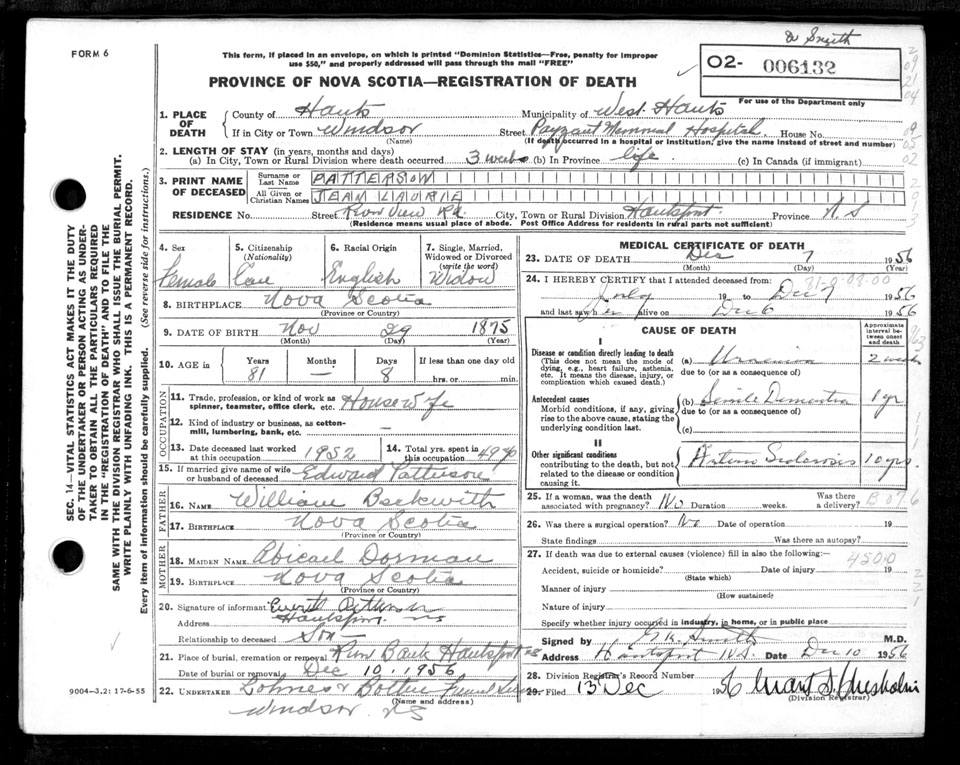 Dr Smith
FORM 6
This form, if placed in an envelope, on which is printed "Dominion Statistics—Free, penalty for improper
use $50," and properly addressed will pass through the mail "FREE"
O2- 006132
For use of the Department only
PROVINCE OF NOVA SCOTIA—REGISTRATION OF DEATH
1. PLACE OF DEATH County of Hants Municipality of West Hants
If in City or Town Windsor Street Payzant Memorial Hospital House No.
(Name) (If death occurred in a hospital or institution, give the name instead of street and number)
2. LENGTH OF STAY (in years, months and days)
(a) In City, Town or Rural Division where death occurred 3 weeks (b) In Province life (c) In Canada (if immigrant)
3. PRINT NAME OF DECEASED Surname or Last Name PATTERSON
All Given or Christian Names JEAN LAURIE
RESIDENCE No. Street River View Rd. City, Town or Rural Division Hantsport. Province N.S
(Residence means usual place of abode. Post Office Address for residents in rural parts not sufficient)
4. Sex Female
5. Citizenship (Nationality) Can
6. Racial Origin English
7. Single, Married, Widowed or Divorced (write the word) Widow
8. BIRTHPLACE Nova Scotia
(Province or Country)
9. DATE OF BIRTH Nov 29 1875
(Month) (Day) (Year)
10. AGE in Years 81 Months — Days 8 If less than one day old
hrs. or min.
OCCUPATION
11. Trade, profession, or kind of work as
spinner, teamster, office clerk, etc. Housewife
12. Kind of industry or business, as cotton-
mill, lumbering, bank, etc.
13. Date deceased last worked at this occupation 1952
14. Total yrs. spent in this occupation 49
15. If married give name of wife or husband of deceased Edward Patterson
FATHER
16. NAME William Beckwith
17. BIRTHPLACE Nova Scotia
(Province or Country)
MOTHER
18. MAIDEN NAME Abicail Dorman
19. BIRTHPLACE Nova Scotia
(Province or Country)
20. Signature of informant Everett Patterson
Address Hantsport. NS
Relationship to deceased Son
21. Place of burial, cremation or removal River Bank Hantsport NS
Date of burial or removal Dec 10. 1956
22. UNDERTAKER Lohnes & Funeral
Windsor. NS (Name and address)
MEDICAL CERTIFICATE OF DEATH
23. DATE OF DEATH Dec 7 1956
(Month) (Day) (Year)
24. I HEREBY CERTIFY that I attended deceased from:
July 19 to Dec 7 1956
and last saw her alive on Dec 6 1956
CAUSE OF DEATH
Approximate interval between onset and death
I
Disease or condition directly leading to death
(This does not mean the mode of
dying, e.g., heart failure, asthenia,
etc. It means the disease, injury, or
complication which caused death.)
(a) 2 weeks
due to (or as a consequence of)
Antecedent causes
Morbid conditions, if any, giving
rise to the above cause, stating the
underlying condition last.
(b) Senile Dementia 1 yr
due to (or as a consequence of)
(c)
II
Other significant conditions
contributing to the death, but not
related to the disease or condition
causing it.
Arterio Sclerosis 10 yrs.
25. If a woman, was the death associated with pregnancy? No Duration weeks. Was there a delivery?
26. Was there a surgical operation? No Date of operation 19
State findings Was there an autopsy?
27. If death was due to external causes (violence) fill in also the following:—
4500
Accident, suicide or homicide? Date of injury 19
(State which)
Manner of injury
(How sustained)
Nature of injury
Specify whether injury occurred in industry, in home, or in public place
Signed by Smith M.D.
Address Hantsport N.S. Date Dec 10 1956
28. Division Registrar's Record Number
29. Filed 13 Dec 1956 Grant S. Chisholm
(Division Registrar)
SEC. 14—VITAL STATISTICS ACT MAKES IT THE DUTY
OF THE UNDERTAKER OR PERSON ACTING AS UNDER-
TAKER TO OBTAIN ALL THE PARTICULARS REQUIRED
IN THE "REGISTRATION OF DEATH" AND TO FILE THE
SAME WITH THE DIVISION REGISTRAR WHO SHALL ISSUE THE BURIAL PERMIT.
WRITE PLAINLY WITH UNFADING INK. THIS IS A PERMANENT RECORD.
Every item of information should be carefully supplied. (See reverse side for instructions.)
9004—3.2: 17-6-55